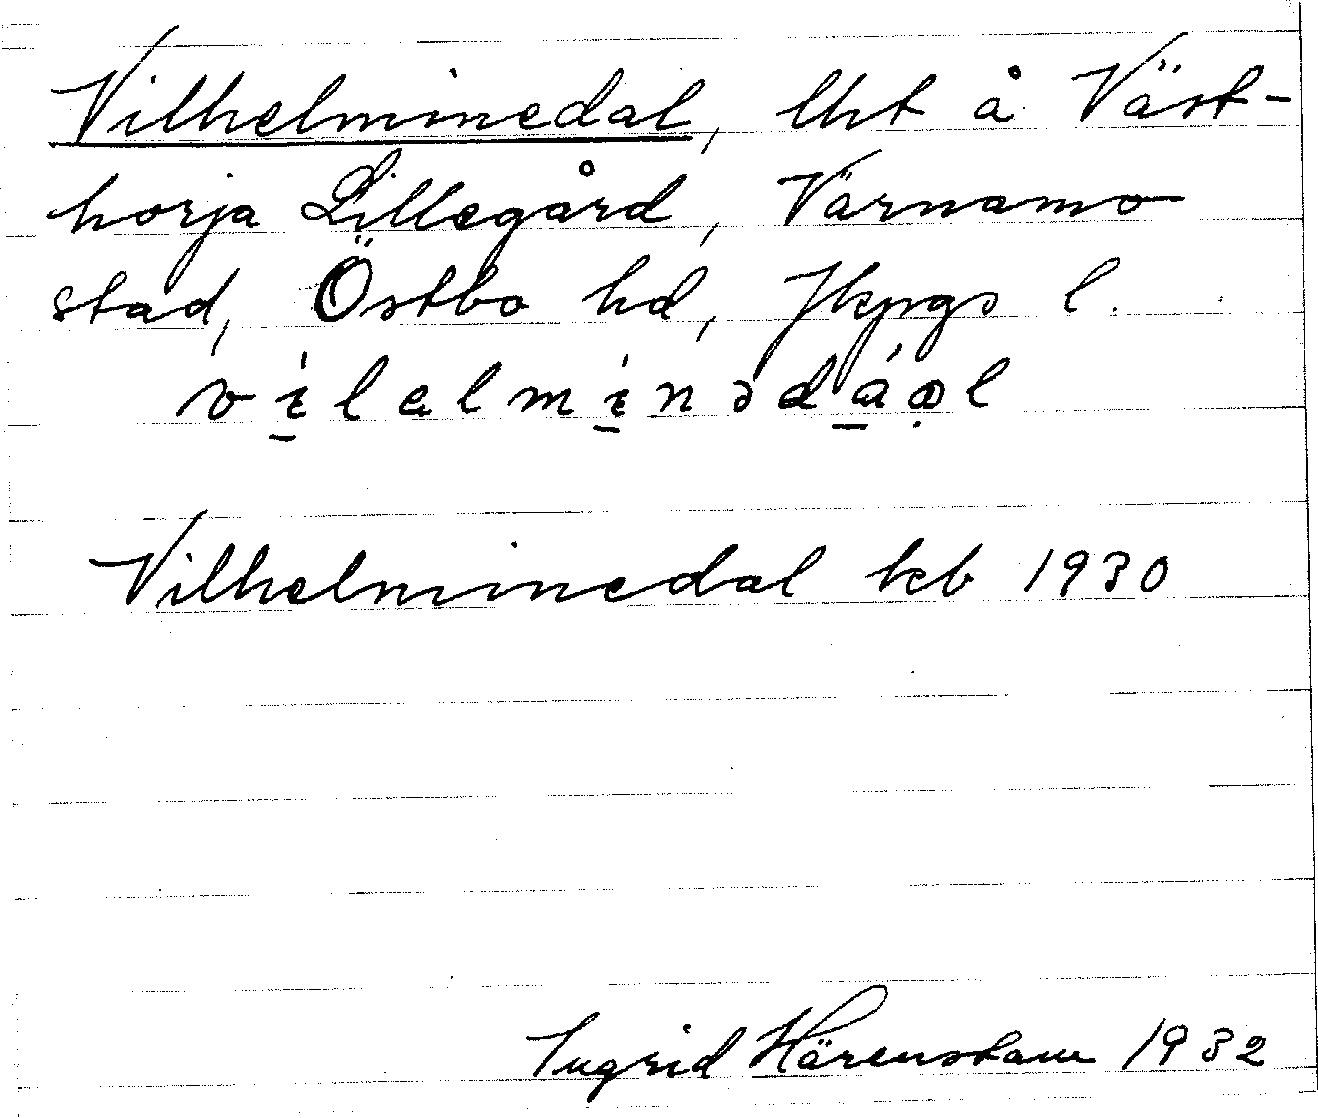 Vilhelminedal, lht å Väst-
horja Lillegård, Värnamo
stad, Östbo hd, Jkpgs l.
Vilhelminedal kb 1930
Ingrid Härenstam 1932